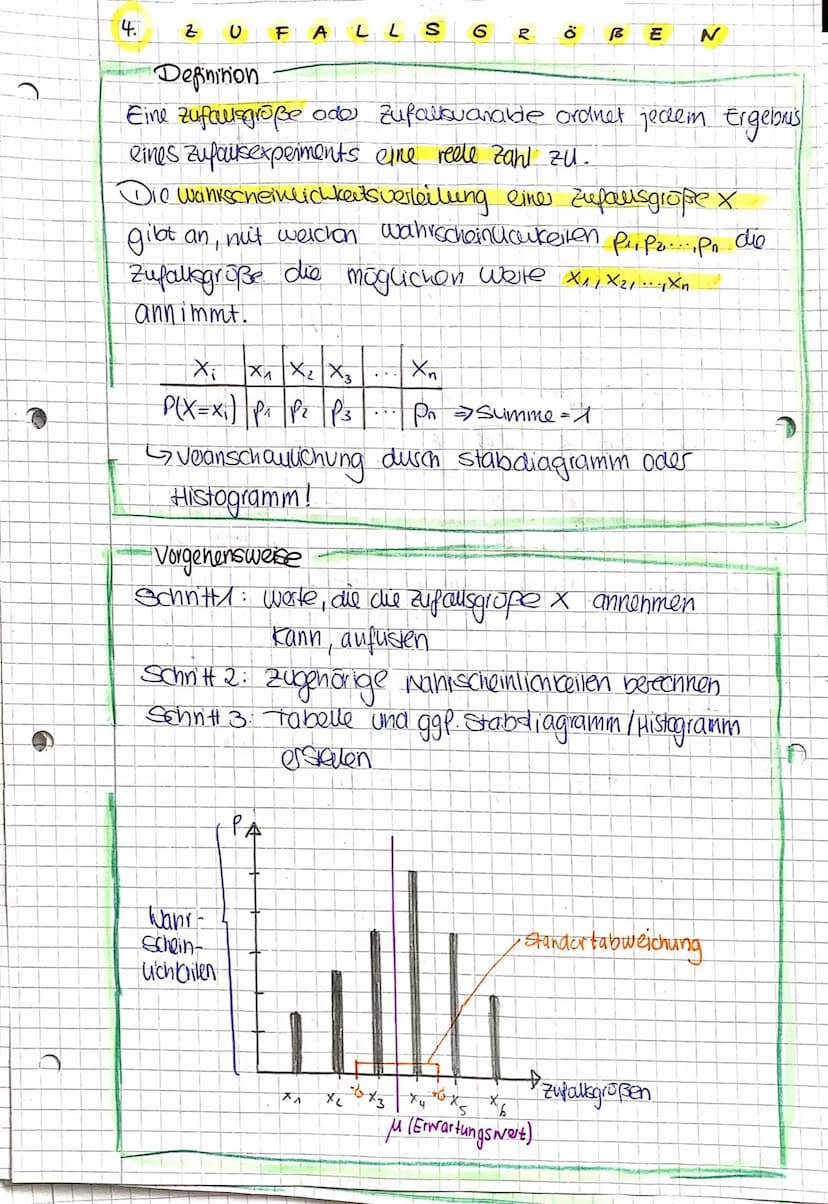 4. ZUFALLSGRÖßEN
Definition
Eine Zufallsgröße oder Zufallsvariable ordnet jedem Ergebnis
eines Zufallsexperiments eine reelle Zahl zu.
Die Wahrscheinlichkeitsverteilung einer Zufallsgröße X
gibt an, mit welchen Wahrscheinlichkeiten p₁, p₂, ..., pₙ die
Zufallsgröße die möglichen Werte x₁, x₂, ..., xₙ
annimmt.
xᵢ x₁ x₂ x₃ ... xₙ
P(X=xᵢ) p₁ p₂ p₃ ... pₙ ⇒ Summe = 1
↳ Veranschaulichung durch Stabdiagramm oder
Histogramm!
Vorgehensweise
Schritt 1: Werte, die die Zufallsgröße X annehmen
kann, auflisten
Schritt 2: zugehörige Wahrscheinlichkeiten berechnen
Schritt 3: Tabelle und ggf. Stabdiagramm/Histogramm
erstellen
P
Wahr-
schein-
lichkeiten
Standartabweichung
x₁ x₂ -σ x₃ x₄ +σ x₅ x₆ Zufallsgrößen
μ (Erwartungswert)